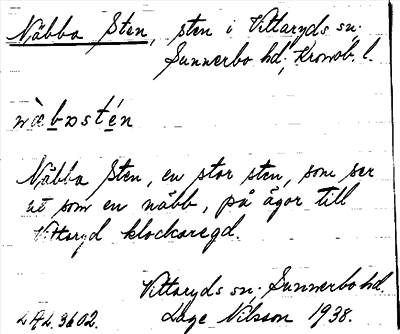 Näbba Sten, sten i Vittaryds sn.
Sunnerbo hd., Kronob. l.
næ̀bɒstén
Näbba Sten, en stor sten, som ser
ut som en näbb, på ägor till
Vittaryd klockaregd.
Vittaryds sn. Sunnerbo hd.
LAL. 3602. Lage Nilsson 1938.